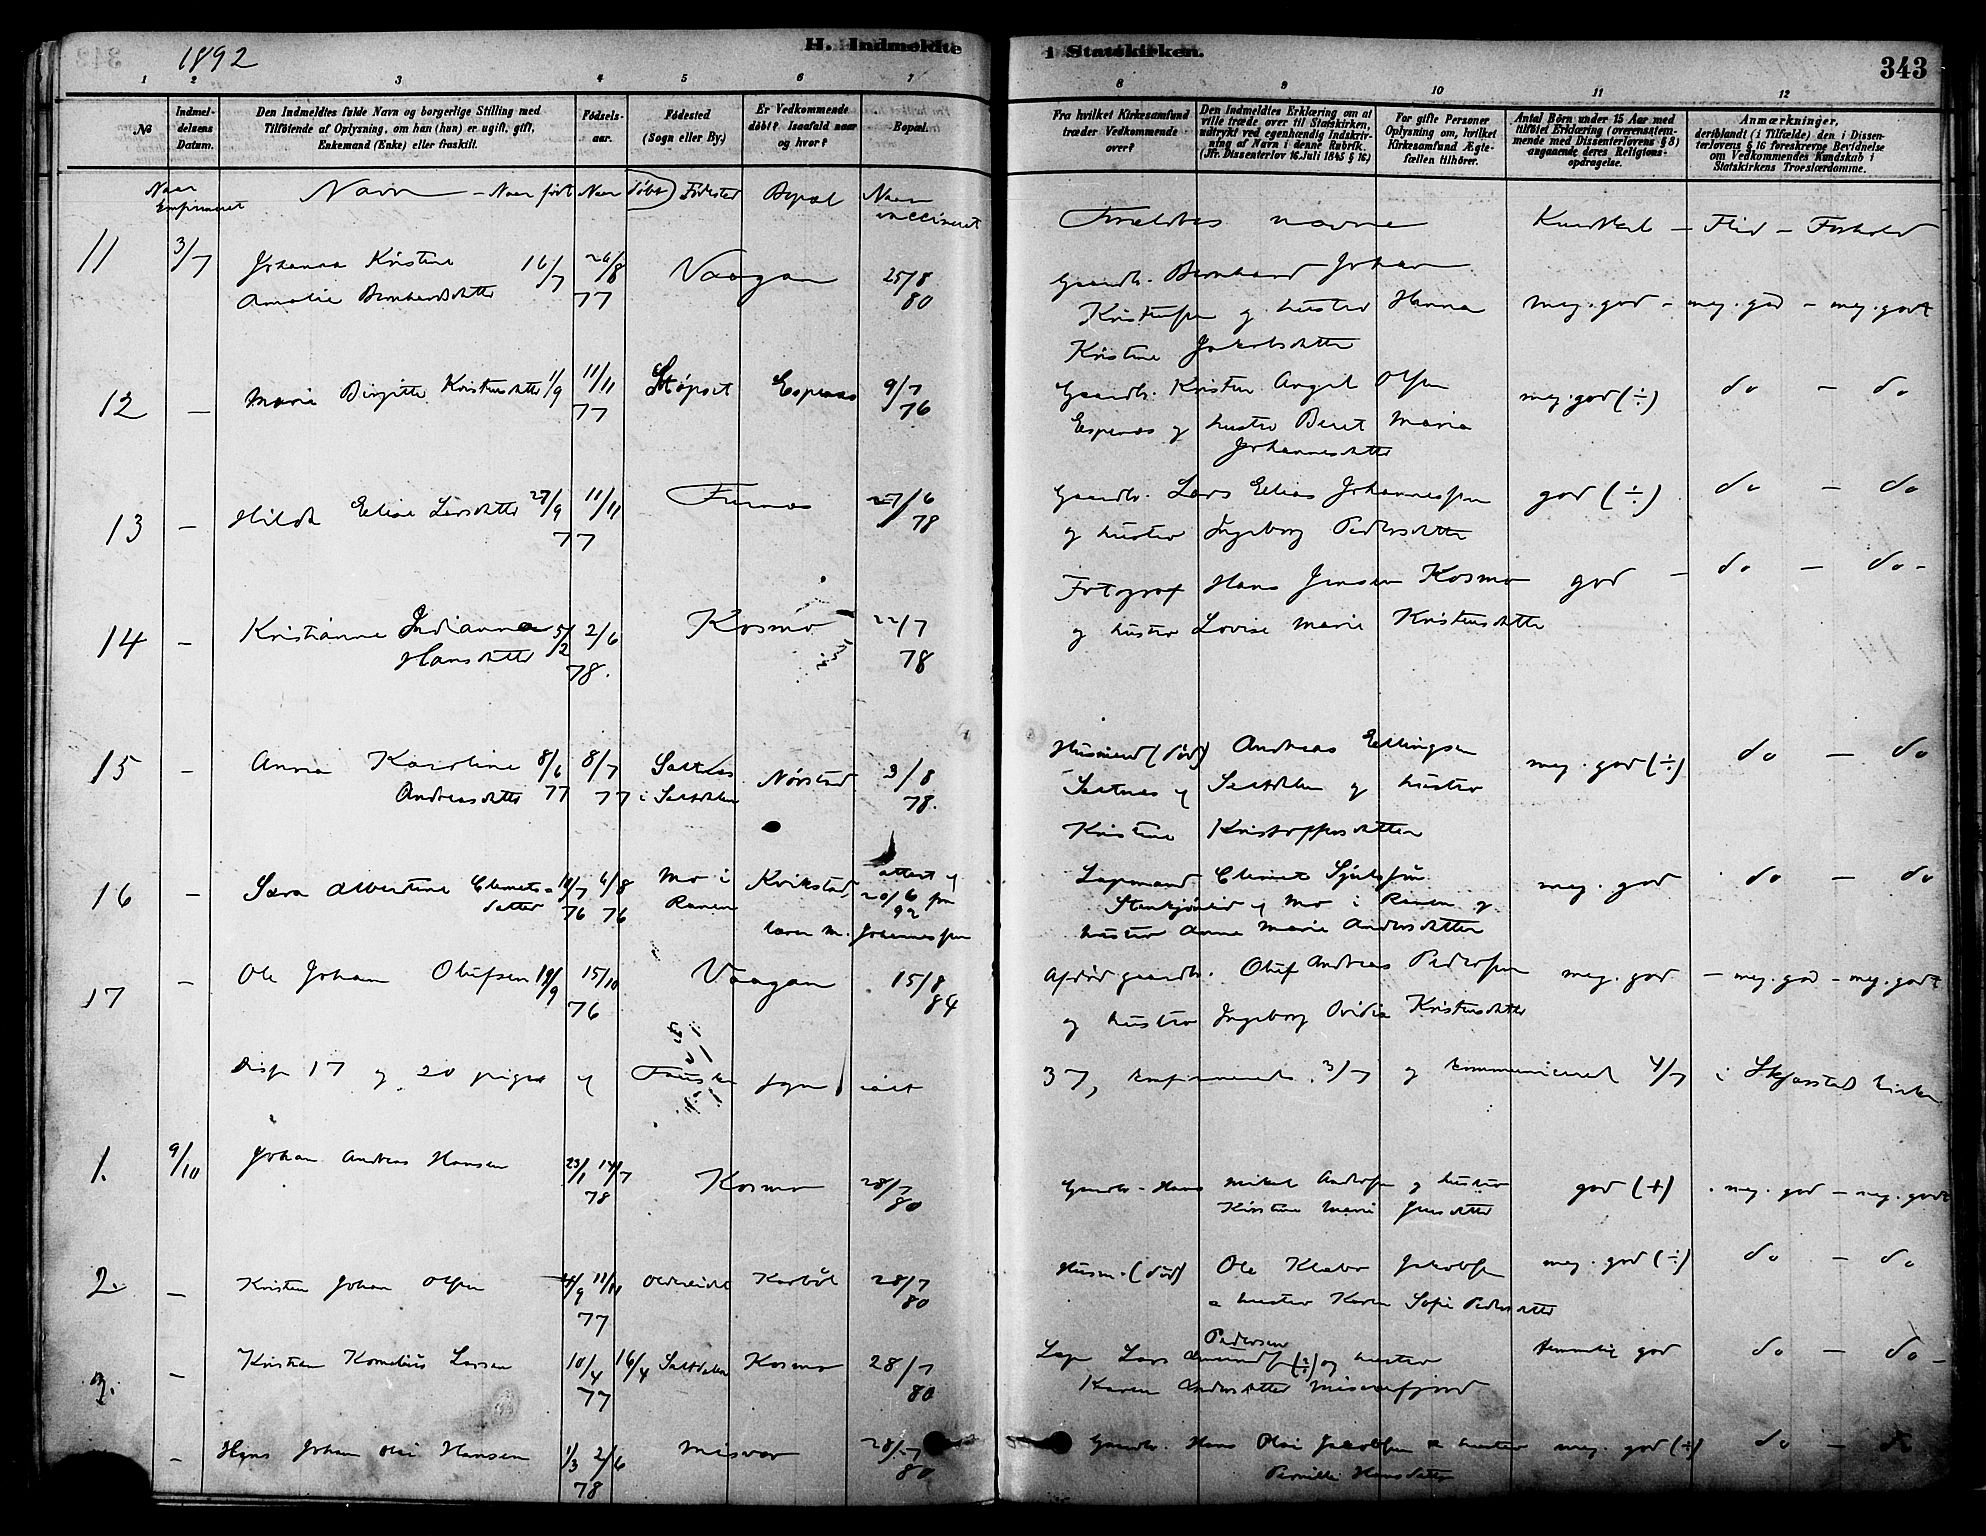 1892
H. Indmeldte i Statskirken.
343
1 2 3 4 5 6 7 8 9 10 11 12
No
Indmeldelsens Datum.
Den Indmeldtes fulde Navn og borgerlige Stilling med
Tilføiende af Oplysning, om han (hun) er ugift, gift,
Enkemand (Enke) eller fraskilt.
Fødselsaar.
Fødested
(Sogn eller By.)
Er Vedkommende
døbt? Isaafald naar
og hvor?
Bopæl.
Fra hvilket Kirkesamfund
træder Vedkommende
over?
Den Indmeldtes Erklæring om at
ville træde over til Statskirken,
udtrykt ved egenhændig Indskrivning
af Navn i denne Rubrik.
(Jfr. Dissenterlov 16. Juli 1845 § 16.)
For gifte Personer
Oplysning om, hvilket
Kirkesamfund Ægtefællen
tilhører.
Antal Børn under 15 Aar med
tilføiet Erklæring (overensstemmende
med Dissenterlovens § 8)
angaaende deres Religionsopdragelse.
Anmærkninger,
deriblandt (i Tilfælde) den i Dissenterlovens
§ 16 foreskrevne Bevidnelse
om Vedkommendes Kundskab i
Statskirkens Troeslærdomme.
Naar Confirmeret
Navn - Naar født Naar døbt Fødested Bopæl Naar vaccineret
Forældres navne Kundskab - Flid - Forhold
11 3/7 Johanna Kristine 16/7 26/8 Vaagan 25/8
Amalie Bernhardsdatter 77 80
Gaardb. Bernhard Johan
Kristensen og hustru Hanna meg. god - meg. god - meg. godt
Kristine Jakobsdatter
12 - Marie Birgitte Kristensdatter 1/9 11/11 Støpset Espenes 9/7
77 76
Gaardb. Kristen Angel Olsen meg. god (÷) do - do
Espenes og hustru Beret Maria
Johannesdatter
13 - Hilda Elise Larsdatter 27/9 11/11 Furnes 27/6
77 78
Gaardb. Lars Elias Johannessen god (÷) do - do
og hustru Ingeborg Pedersdatter
14 - Kristianne Indianna 5/2 2/6 Kosmo 22/7
Hansdatter 78. 78
Fotograf Hans Jensen Kosmo god - do - do -
og hustru Lovise Marie Kristensdatter
15 - Anna Karoline 8/6 8/7 Saltnes Nørstad 3/8
Andreasdatter 77 77 i Saltdalen 78.
Husmand (død) Andreas Ellingsen meg. god (÷) do - do
Saltnes i Saltdalen og hustru
Kristine Kristoffersdatter
16 - Sara Albertine Clemetsdatter 10/7 6/8 Mo i Kvikstad, attest af
76 76 Ranen 20/6 fra
92
lærer M. Johannessen
Lapmand Clemet meg. god do - do
Mo i Ranen og
hustru Anne Marie Andersdatter
17 - Ole Johan Olufsen 19/9 15/10 Vaagan 15/8
76 84
Afdød gaardb. Oluf Andreas Pedersen meg. god - meg. god - meg. godt
og hustru Ingeborg Ovidia Kristensdatter
Disse 17 og 20 piger af Fauske sogn, ialt 37, konfirmerede 3/7 og kommuniceret 4/7 i Skjerstad kirke
1. 9/10 Johan Andreas Hansen 23/1 14/7 Kosmo 28/7
78 80
Gaardb. Hans Mikal Andersen og hustru god (+) meg. god - meg. godt
Kirstine Marie Jensdatter
2. - Kristen Johan Olsen 11/11 Oldereidet Karbøl 28/7
77 80
Husm. (død) Ole Klæbo Jakobsen meg. god (÷) do - do
& hustru Karen Sofie Pedersdatter
3. - Kristian Kornelius Larsen 10/4 16/4 Saltdalen Kosmo 28/7
77 80
Lap Lars Pedersen (÷) og hustru temmelig god do - do -
Karen Andersdatter Misværfjord
- Hans Johan Olai Hansen 1/3 2/6 Misvær 28/7
78 80
Gaardb. Hans Olai Jakobsen & hustru meg. god (÷) do -
Pernille Hansdatter